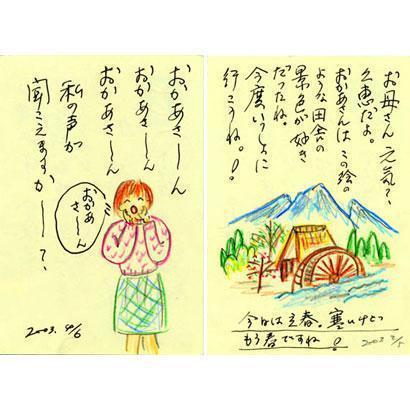 おかあさーん
おかあさーん
おかあさーん
私の声が
聞こえますかー?
おかあ
さーん
2003.
お母さん 元気?
久恵だよ。
おかあさんは この絵の
ような田舎の
景色が好き
だったね。
今度いっしょに
行こうね。!
今日は立春。寒いけど
もう春ですね!
2003